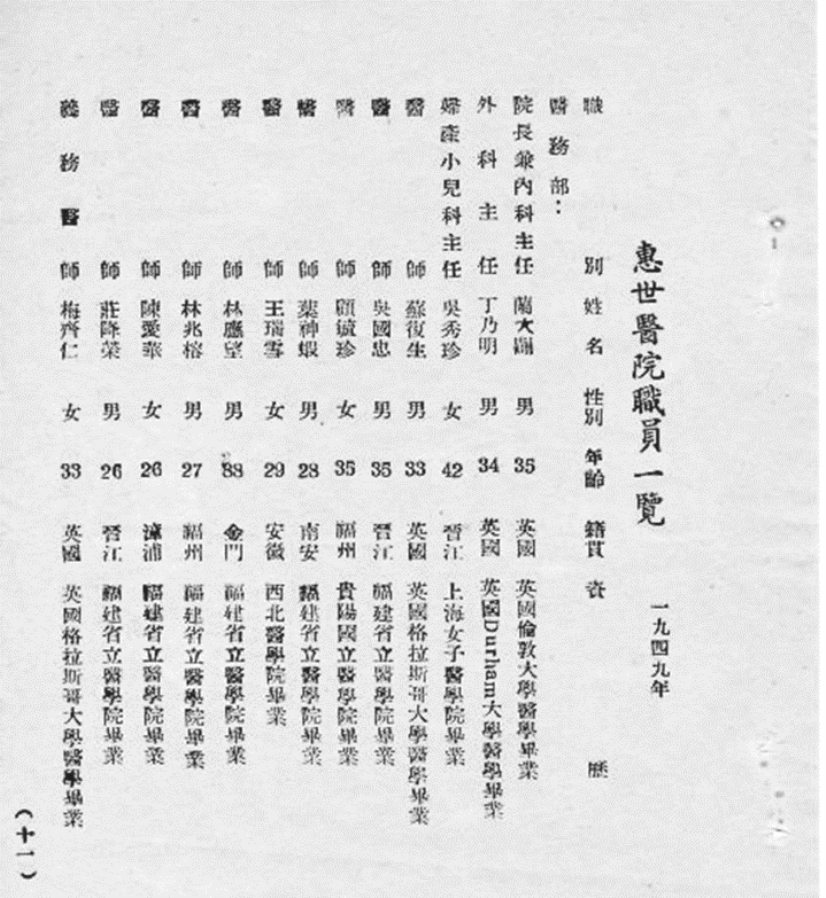 惠世醫院職員一覽
一九四九年
職別 姓名 性別 年齡 籍貫 資歷
醫務部：
院長兼內科主任 蘭大闢 男 35 英國 英國倫敦大學醫學畢業
外科主任 丁乃明 男 34 英國 英國Durham大學醫學畢業
婦產小兒科主任 吳秀珍 女 42 晉江 上海女子醫學院畢業
醫師 蘇復生 男 33 英國 英國格拉斯哥大學醫學畢業
醫師 吳國忠 男 35 晉江 福建省立醫學院畢業
醫師 顧毓珍 女 35 福州 貴陽國立醫學院畢業
醫師 葉神蝦 男 28 南安 福建省立醫學院畢業
醫師 王瑞雪 女 29 安徽 西北醫學院畢業
醫師 林應望 男 38 金門 福建省立醫學院畢業
醫師 林兆榕 男 27 福州 福建省立醫學院畢業
醫師 陳愛華 女 26 漳浦 福建省立醫學院畢業
醫師 莊降榮 男 26 晉江 福建省立醫學院畢業
義務醫師 梅齊仁 女 33 英國 英國格拉斯哥大學醫學畢業
（十一）